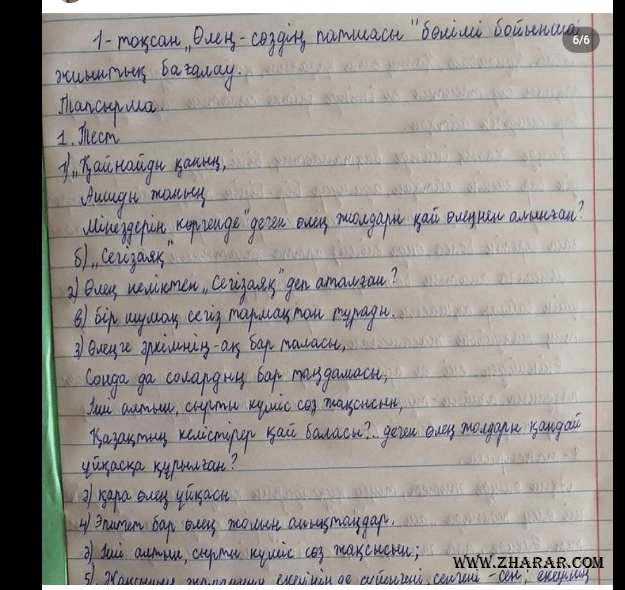 1-тоқсан "Өлең-сөздің патшасы" бөлімі бойынша
6/6
жиынтық бағалау.
Тапсырма.
1. Тест
1) "Қайнайды қаның,
Ашиды жаның
Мінездерін көргенде" деген өлең жолдары қай өлеңнен алынған?
б) "Сегізаяқ"
2) Өлең неліктен "Сегізаяқ" деп аталған?
в) бір шумақ сегіз тармақтан тұрады.
3) Өлеңге әркімнің-ақ бар таласы,
Сонда да солардың бар таңдамасы,
Іші алтын, сырты күміс сөз жақсысын,
Қазақтың келістірер қай баласы?.. деген өлең жолдары қандай
ұйқасқа құрылған?
э) қара өлең ұйқасы
4) Эпитет бар өлең жолын анықтаңдар.
э) Іші алтын, сырты күміс сөз жақсысын;
WWW.ZHARAR.COM
5)